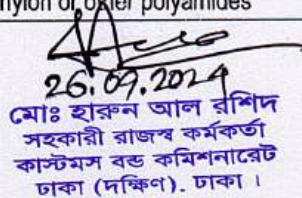 nylon or other polyamides
26.09.2024
মোঃ হারুন আল রশিদ
সহকারী রাজস্ব কর্মকর্তা
কাস্টমস বন্ড কমিশনারেট
ঢাকা (দক্ষিণ). ঢাকা ।